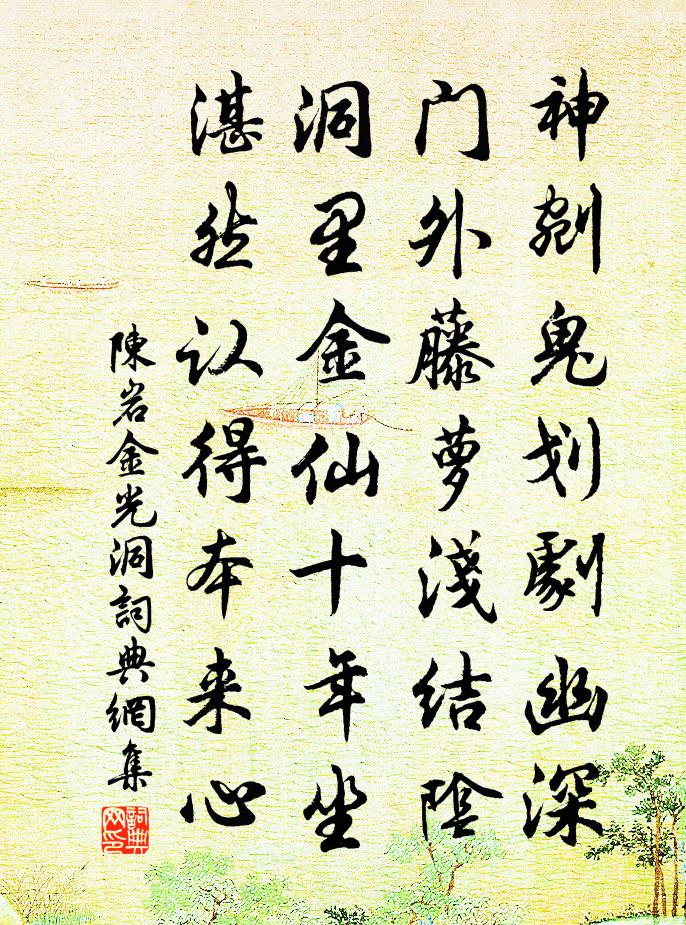 神剜鬼划劇幽深
门外藤萝淺结陰
洞里金仙十年坐
湛然认得本来心
陳岩金光洞詞典網集
詞典网印